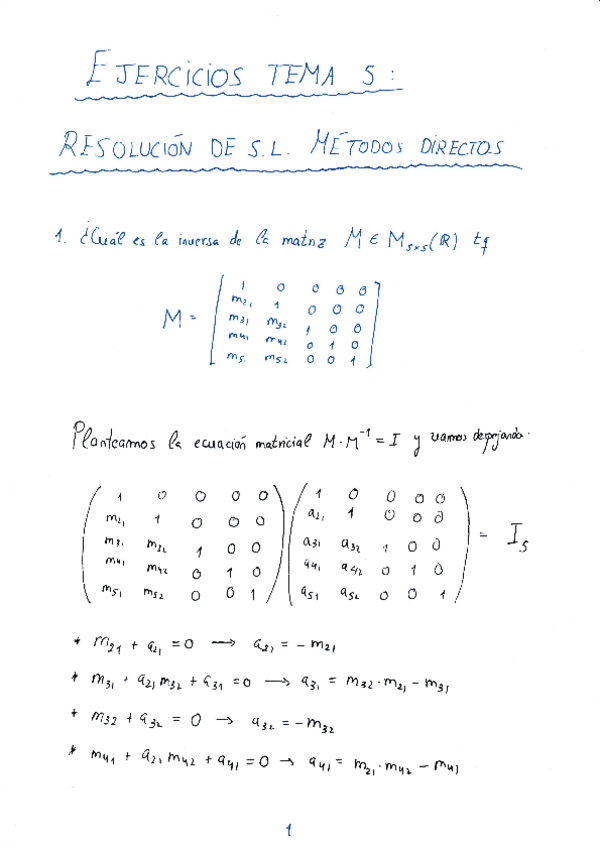 EJERCICIOS TEMA 5:
RESOLUCIÓN DE S.L. MÉTODOS DIRECTOS
1. ¿Cuál es la inversa de la matriz M ∈ M₅ₓ₅(ℝ) tq
M =
1 0 0 0 0
m₂₁ 1 0 0 0
m₃₁ m₃₂ 1 0 0
m₄₁ m₄₂ 0 1 0
m₅. m₅₂ 0 0 1
Planteamos la ecuación matricial M·M⁻¹ = I y vamos despejando.
1 0 0 0 0 1 0 0 0 0
m₂₁ 1 0 0 0 a₂₁ 1 0 0 0
m₃₁ m₃₂ 1 0 0 a₃₁ a₃₂ 1 0 0 = I₅
m₄₁ m₄₂ 0 1 0 a₄₁ a₄₂ 0 1 0
m₅₁ m₅₂ 0 0 1 a₅₁ a₅₂ 0 0 1
* m₂₁ + a₂₁ = 0 → a₂₁ = - m₂₁
* m₃₁ + a₂₁ m₃₂ + a₃₁ = 0 → a₃₁ = m₃₂ · m₂₁ - m₃₁
* m₃₂ + a₃₂ = 0 → a₃₂ = - m₃₂
* m₄₁ + a₂₁ m₄₂ + a₄₁ = 0 → a₄₁ = m₂₁ · m₄₂ - m₄₁
1